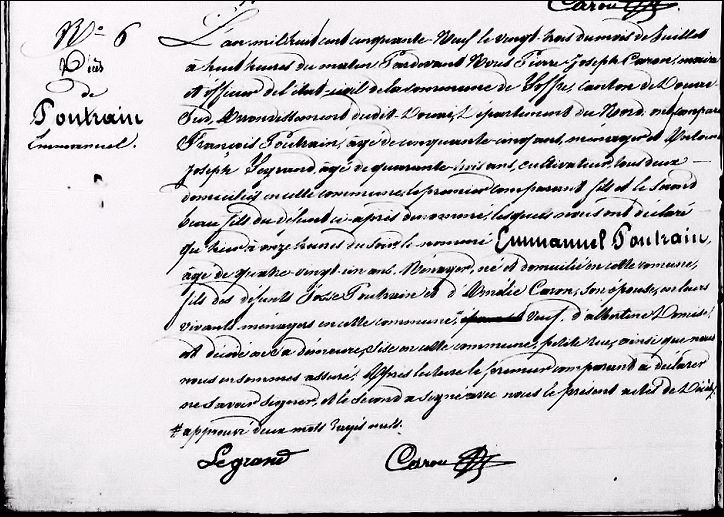 Carou
N.º 6
Décès
de
Poutrain
Emmanuel.
L'an mil huit cent cinquante Neuf le vingt trois du mois de Juillet
à huit heures du matin Pardevant Nous Pierre Joseph Caron, maire
et officier de l'état-civil de la commune de Joffre, canton de Douai
Sud, Arrondissement dudit Douai, Département du Nord, ont comparu
François Poutrain, âgé de cinquante cinq ans, ménager et
Joseph Legrand, âgé de quarante trois ans, cultivateur, tous deux
domiciliés en cette commune, le premier comparant fils et le second
beau fils du défunt ci-après dénommé, lesquels nous ont déclaré
qu'hier à onze heures du soir le nommé Emmanuel Poutrain,
âgé de quatre-vingt-un ans, Ménager, né et domicilié en cette commune,
fils des défunts Poutrain et d'Amélie Caron, son épouse, en leurs
vivants ménagers en cette commune, veuf d'albertine
est décédé en sa demeure, sise en cette commune, petite rue, ainsi que nous
nous en sommes assuré. Après lecture le premier comparant a déclaré
ne savoir signer, et le second a signé avec nous le présent acte de Décès,
# approuvé deux mots rayés nuls.
Legrand Carou